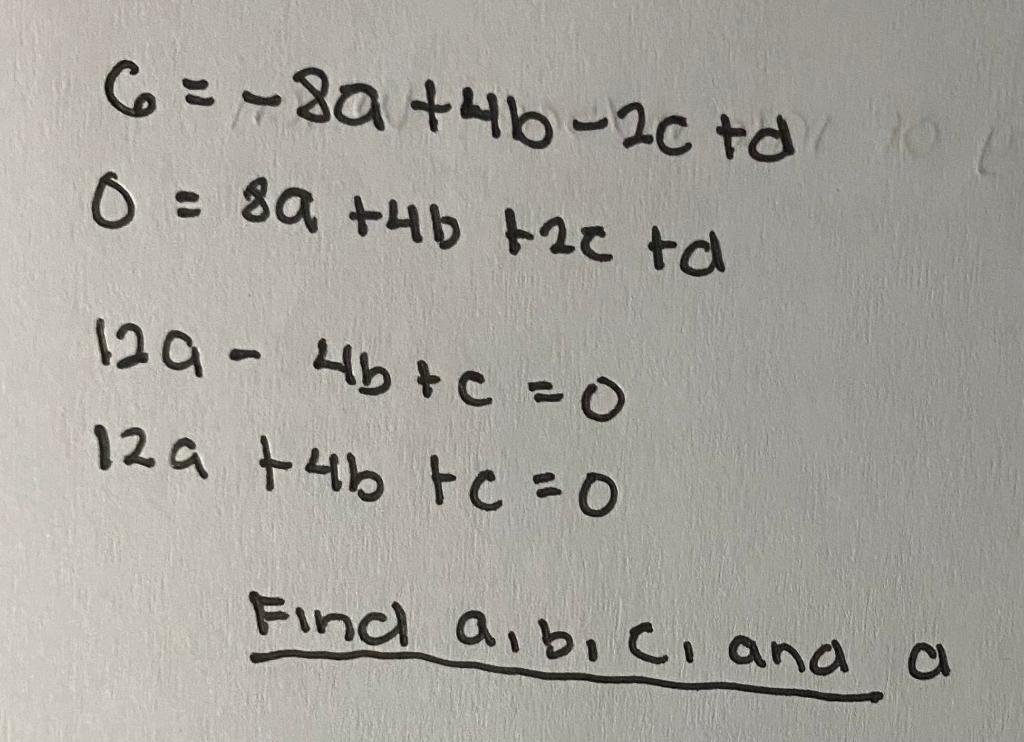 6 = -8a +4b -2c +d
0 = 8a +4b +2c +d
12a - 4b + c = 0
12a +4b +c = 0
Find a, b, c, and d